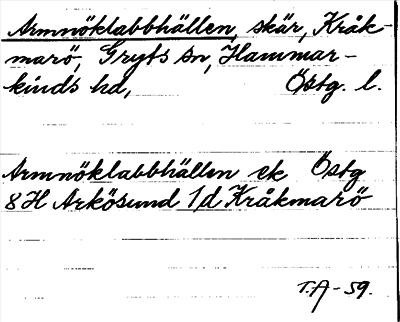 Armnöklabbhällen, skär, Kråk-
marö, Gryts sn, Hammar-
kinds hd, Östg. l.
Armnöklabbhällen ek Östg
8H Arkösund 1d Kråkmarö
T.A-59.